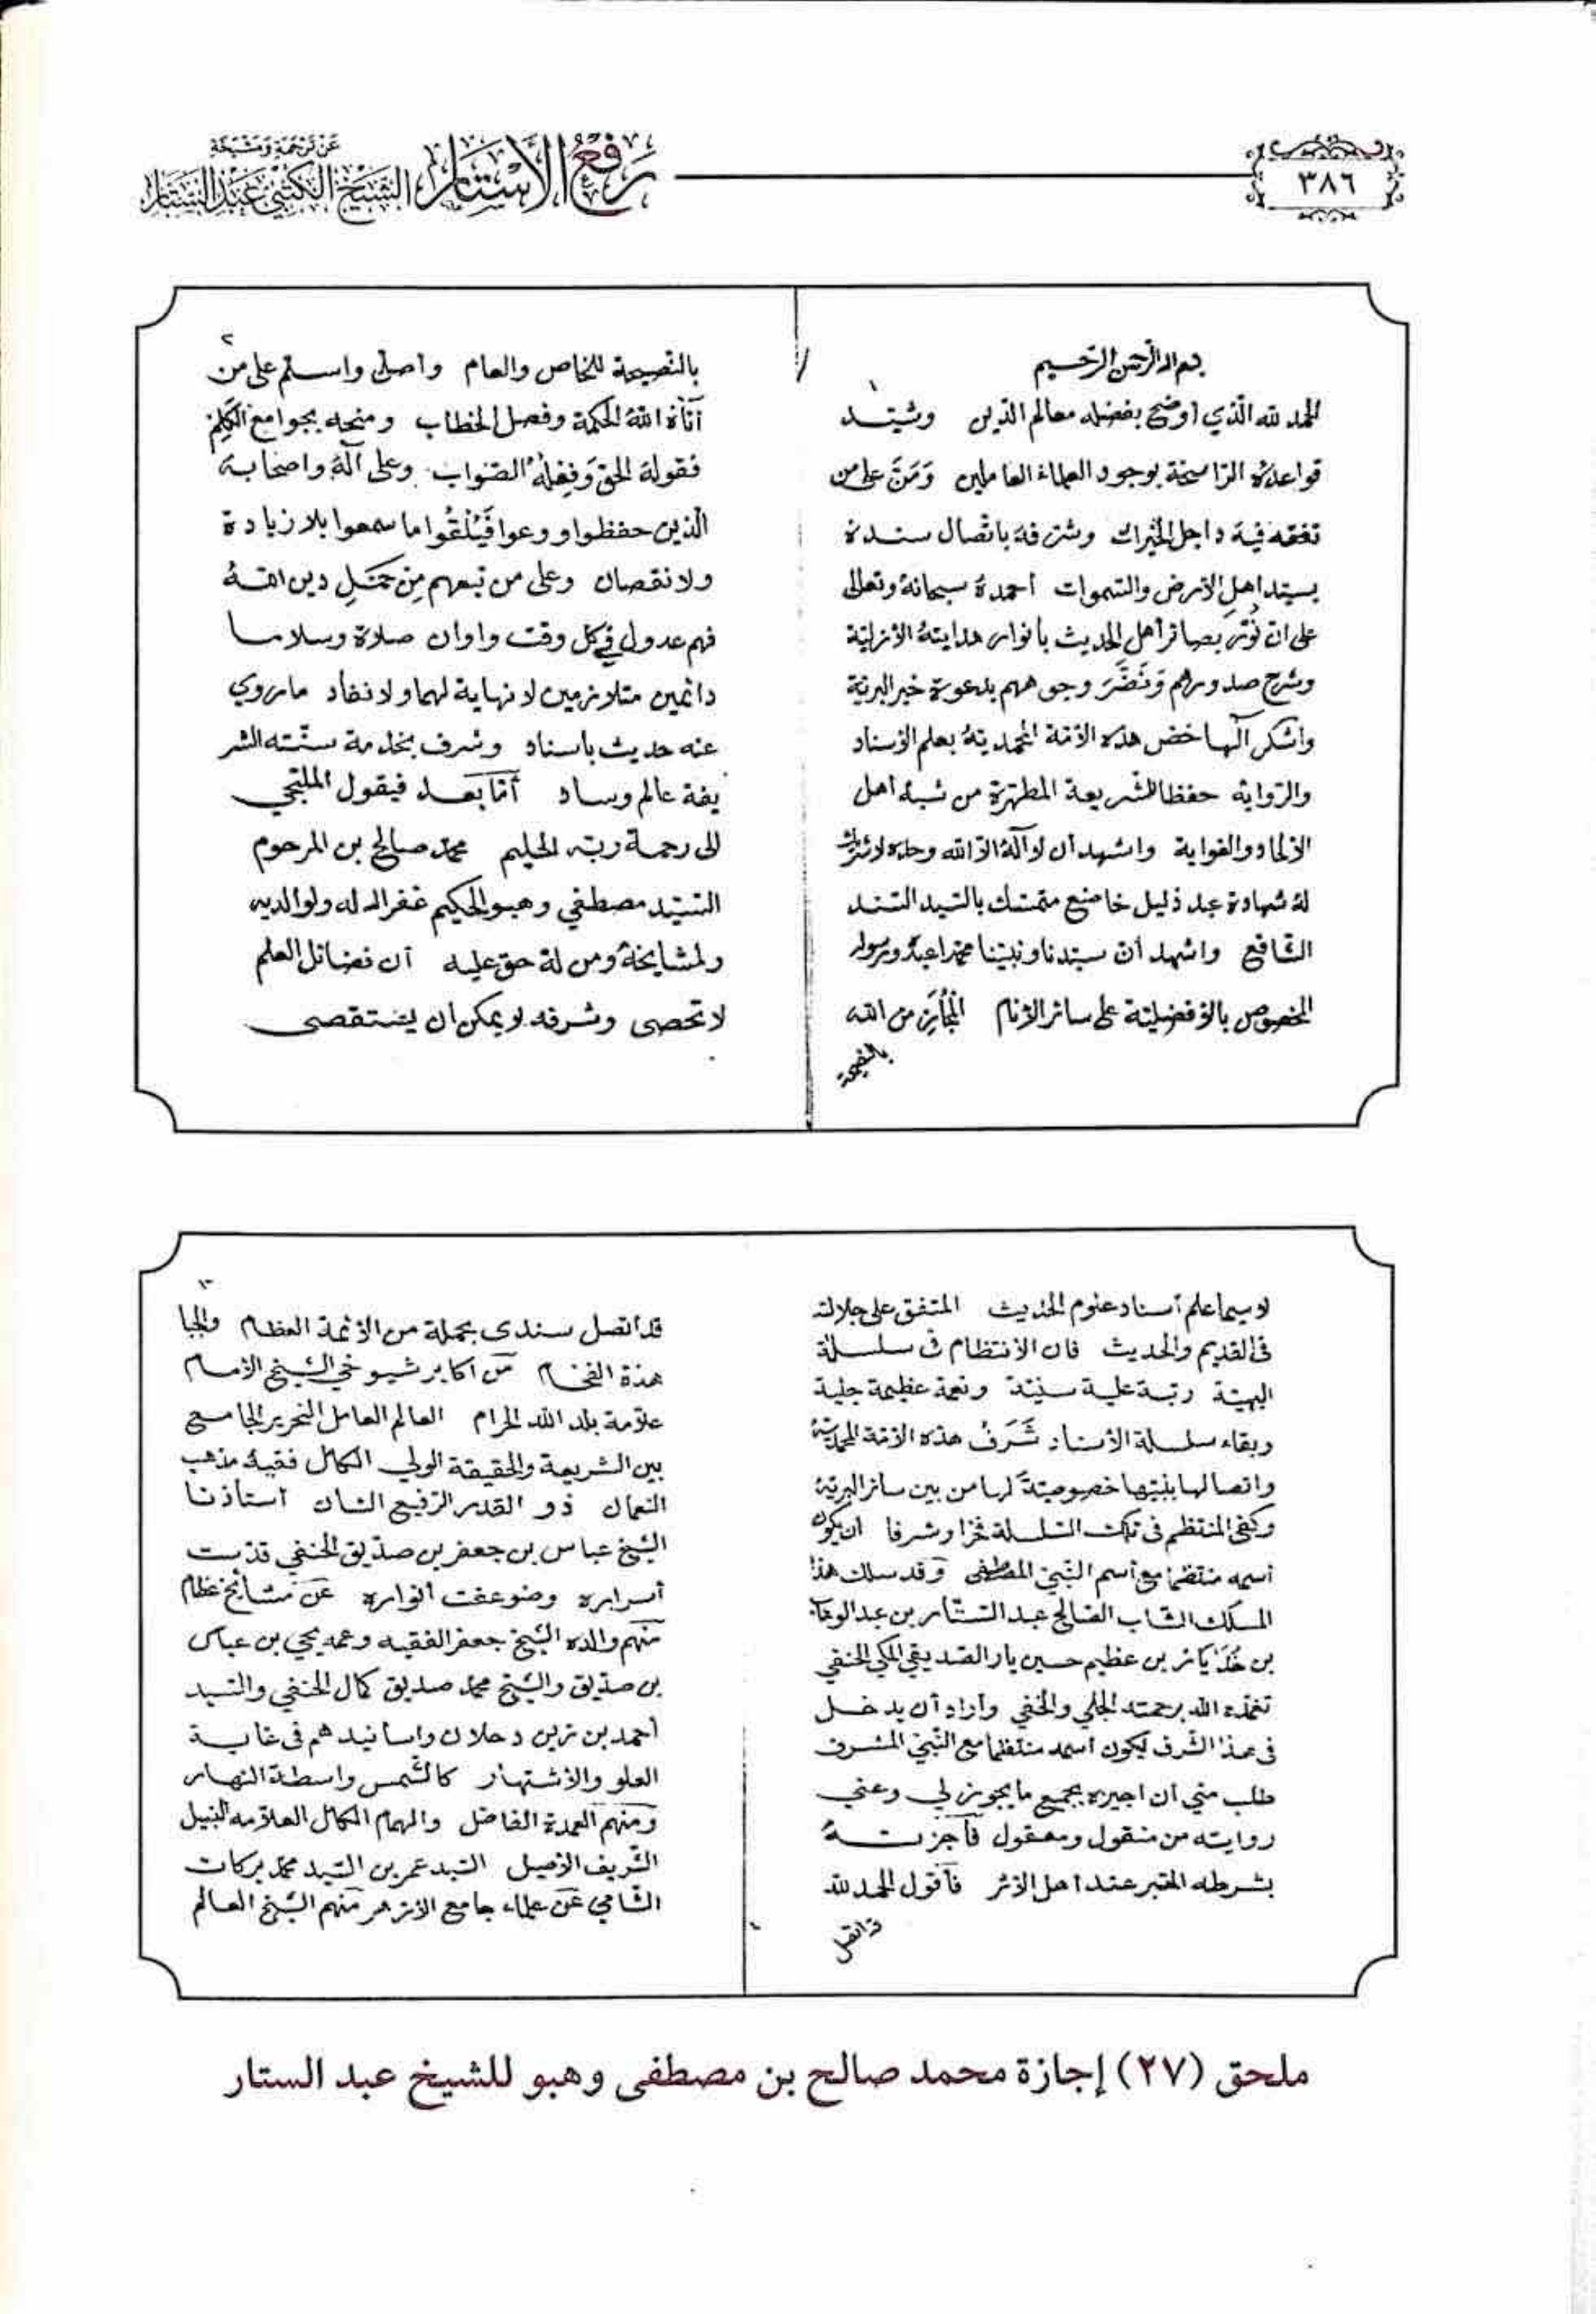 ٣٨٦
رفع الأستار
عن ترجمة ومشيخة
الشيخ الكتبي عبد الستار
بسم الله الرحمن الرحيم
١
الحمد لله الذي أوضح بفضله معالم الدين وشيد
قواعده الراسخة بوجود العلماء العاملين وَمَنَّ على من
تفقه فيه داجل الخيرات وشرفه باتصال سنده
بسيد اهل الارض والسموات أحمده سبحانه وتعالى
على ان نور بصائر أهل الحديث بانوار هدايته الأزلية
وشرح صدورهم ونضّر وجوههم بدعوة خير البرية
واشكر آلها خص هذه الأمة المحمدية بعلم الأسناد
والرواية حفظا للشريعة المطهرة من شبه اهل
الألحاد والغواية واشهد أن لا آله الا الله وحده لا شريك
له شهادة عبد ذليل خاضع متمسك بالسيد السند
الشافع واشهد أن سيدنا ونبينا محمدا عبده ورسوله
المخصوص بالأفضلية على سائر الأنام المجاز من الله
بالنصيحة
٢
بالنصيحة للخاص والعام وأصلي واسلم على من
آتاه الله الحكمة وفصل الخطاب ومنحه بجوامع الكلم
فقوله الحق وفعله الصواب وعلى آله واصحابه
الذين حفظوا ووعوا فبلغوا ما سمعوا بلا زيادة
ولا نقصان وعلى من تبعهم من حمل دين الله
فهم عدول في كل وقت واوان صلاة وسلاما
دائمين متلازمين لا نهاية لهما ولا نفاد ما روي
عنه حديث باسناد وشرف بخدمة سنته الشر
يفة عالم وساد أما بعد فيقول الملتجي
الى رحمة ربه الحليم محمد صالح بن المرحوم
السيد مصطفي وهبو الحكيم غفر الله له ولوالديه
ولمشايخه ومن له حق عليه أن فضائل العلم
لا تحصى وشرفه لا يمكن ان يستقصى
لا سيما علم أسناد علوم الحديث المتفق على جلالته
في القديم والحديث فان الأنتظام في سلسلة
البهية رتبة علية سنية ونعمة عظيمة جلية
وبقاء سلسلة الأسناد شَرَفُ هذه الأمة المحمدية
واتصالها بنبيها خصوصيةً لها من بين سائر البرية
وكفى المنتظم في تلك السلسلة فخرا وشرفا أن يكون
أسمه منتظما مع أسم النبي المصطفى وقد سلك هذا
المسلك الشاب الصالح عبد الستار بن عبد الوهاب
بن خُدَايَار بن عظيم حسين يار الصديقي المكي الحنفي
تغمده الله برحمته الجلي والخفي وأراد أن يدخل
في هذا الشرف ليكون اسمه منتظما مع النبي المشرف
طلب مني ان اجيزه بجميع ما يجوز لي وعني
روايته من منقول ومعقول فأجزته
بشرطه المعتبر عند اهل الأثر فأقول الحمد لله
قد اتصل
٣
قد اتصل سندي بجملة من الأئمة العظام والجها
بذة الفخام من أكابر شيوخي الشيخ الأمام
علامة بلد الله الحرام العالم العامل النحرير الجامع
بين الشريعة والحقيقة الولي الكامل فقيه مذهب
النعمان ذو القدر الرفيع الشان أستاذنا
الشيخ عباس بن جعفر بن صديق الحنفي قدست
أسراره وضوعفت انواره عن مشايخ عظام
منهم والده الشيخ جعفر الفقيه وعمه يحي بن عباس
بن صديق والشيخ محمد صديق كمال الحنفي والسيد
أحمد بن زين دحلان واسانيدهم في غاية
العلو والأشتهار كالشمس واسطة النهار
ومنهم العمدة الفاضل والهمام الكامل العلامه النبيل
الشريف الأصيل السيد عمر بن السيد محمد بركات
الشامي عن علماء جامع الأزهر منهم الشيخ العالم
ملحق (٢٧) إجازة محمد صالح بن مصطفى وهبو للشيخ عبد الستار